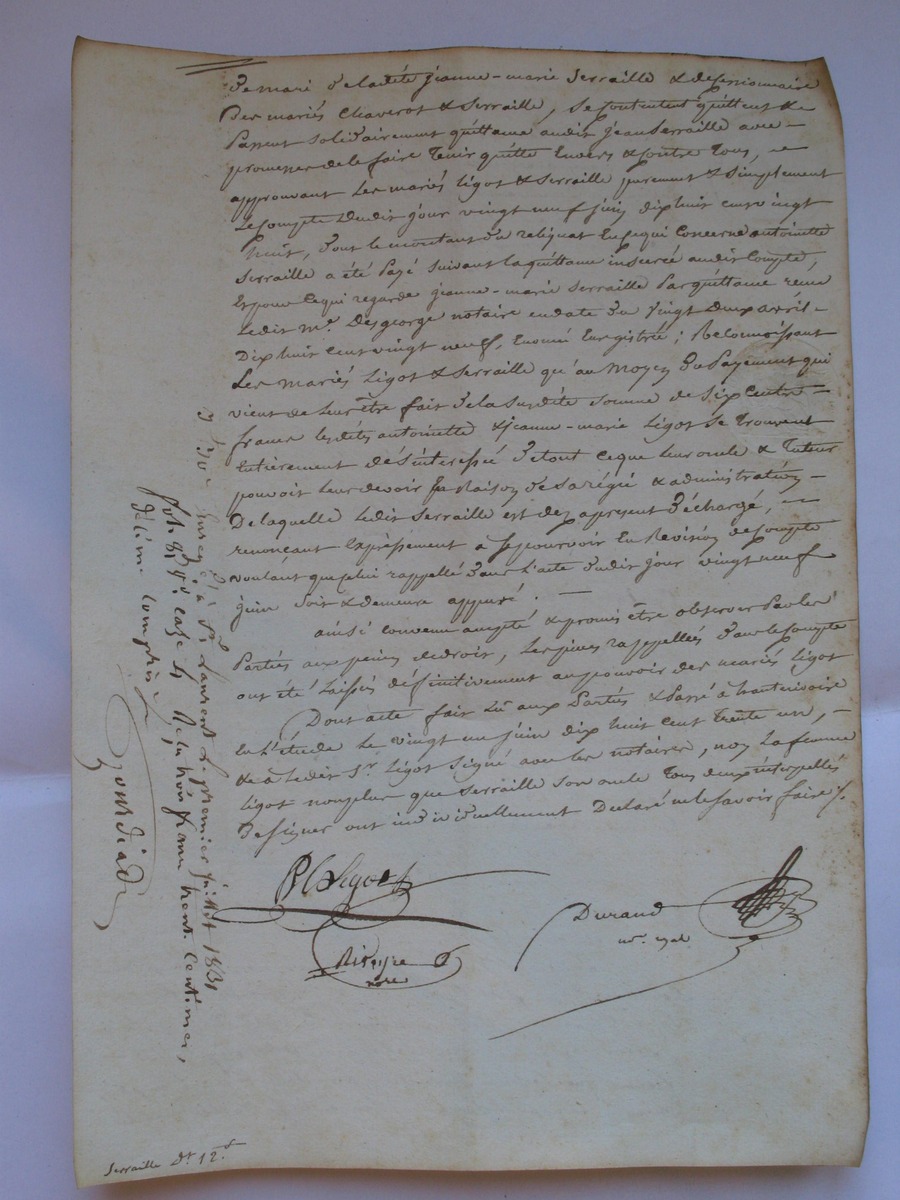 De mari de ladite jeanne-marie Serraille & cessionnaire
Des mariés Chaverot & Serraille, se contentent quittent &
Passent solidairement quittance audit jean Serraille avec
promesse de le faire tenir quitte Envers & Contre Tous,
approuvant Les mariés Ligot & Serraille purement & simplement
Le Compte dudit jour vingt neuf juin dix huit cent vingt
huit, dont le montant du reliquat En ce qui Concerne antoinette
Serraille a été Payé suivant la quittance inserée audit Compte,
Et pour Ce qui regarde jeanne-marie Serraille Par quittance reçue
Ledit Me. Desgeorge notaire en date du Vingt deux avril
Dix huit cent vingt neuf, Enregistrée; Reconnoissant
Les mariés Ligot & Serraille qu'au Moyen Du Payement qui
vient de Leur être fait de la susdite somme de Six Cents
francs lesdites antoinette & jeanne-marie Ligot se trouvent
Entièrement désinteressée de tout Ce que Leur oncle & Tuteur
pouvoit Leur devoir En Raison de sa régie & administration
De laquelle Ledit Serraille est dez apresent déchargé,
renonçant Expressement à se pourvoir En Revision de Compte
voulant que celui rappellé dans l'acte dudit jour vingt neuf
juin soit & demeure appuré.
ainsi convenu accepté & promis être observer Par les
Parties aux peines de droit, Les pieces rappellées dans le Compte
ont été laissées définitivement au pouvoir des mariés Ligot
Dont acte fait Lû aux Parties & Passé à
En L'étude Le vingt un juin dix huit cent trente un,
& a Ledit Sr Ligot Signé avec les notaires, non La femme
Ligot non plus que Serraille son oncle Tous deux interpellés
De signer ont individuellement Declaré ne le savoir faire ./.
Ligot
Durand
nre. royal
nore
Enregé. à St. Laurent Le premier juillet 1831
fol. 8, Ro. case 6, Reçu trois francs trente Centimes,
décime compris
Serraille Dt 12d